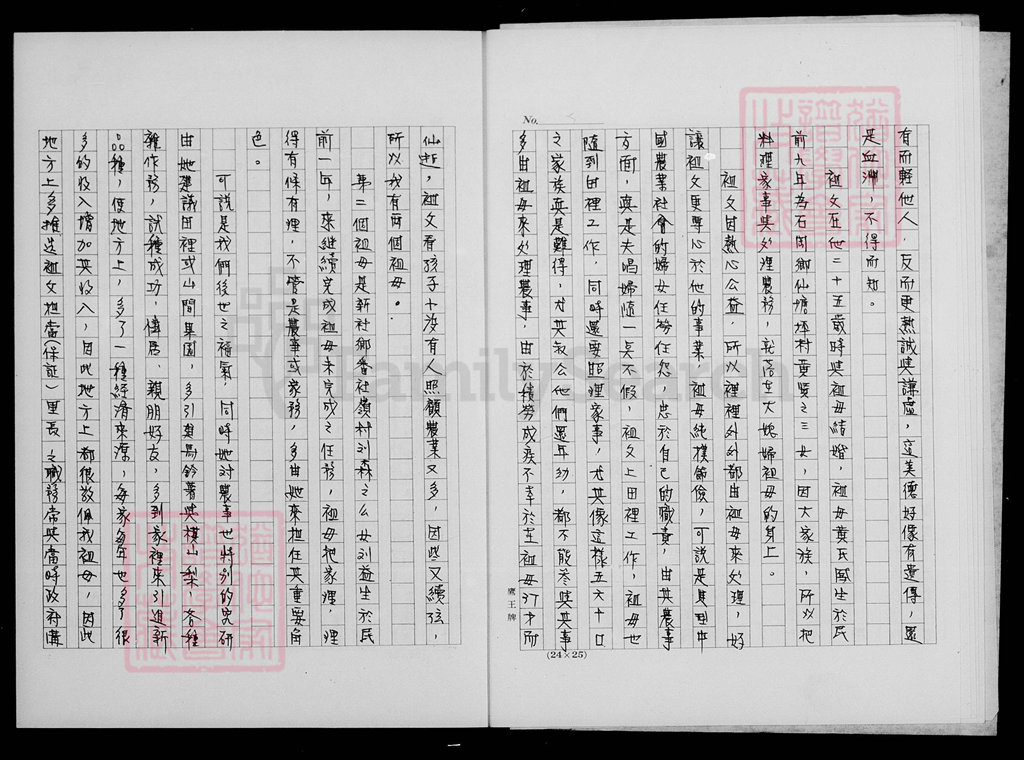 No.
有而輕他人，反而更熱誠與謙虛，這美德好像有遺傳，還
是血淵，不得而知。
祖父在他二十五歲時與祖母結婚，祖母黃氏 生於民
前九年為石岡鄉仙塘坪村黃賢之三女，因大家族，所以把
料理家事與處理農務，就落在大媳婦祖母的身上。
祖父因熱心公益，所以裡裡外外都由祖母來處理，好
讓祖父更專心於他的事業，祖母純樸節儉，可說是具理中
國農業社會的婦女任勞任怨，忠於自己的職責，由其農事
方面，真是夫唱婦隨一点不假，祖父上田裡工作，祖母也
隨到田裡工作，同時還要照理家事，尤其像這樣五六十口
之家族真是難得，尤其叔公他們還年幼，都不能參與其事
多由祖母來處理農事，由於積勞成疾不幸於在祖母37才所
鷹王牌
(24×25)
仙逝，祖父看孩子十沒有人照顧農業又多，因些又續弦，
所以我有兩個祖母。
第二個祖母是新社鄉番社嶺村刘森之么女刘益生於民
前一年，來繼續完成祖母未完成之任務，祖母把家理，理
得有條有理，不管是農事或家務，多由她來担任其重要角
色。
可說是我們後世之福氣，同時她対農事也特別的多研
由她建議田裡或山間果園，多引與馬鈴薯與橫山梨，各種
雜作物，試種成功，傳居、親朋好友，多到家裡來引進新
品種，使地方上，多了一種經濟來源，每家每年也多了很
多的收入增加其收入，因此地方上都很敬佩我祖母，因此
地方上多推选祖父担當(保証)里長之職務常與當時政府溝